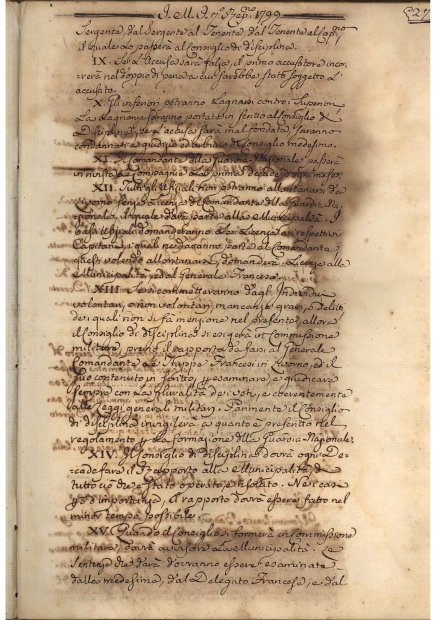 J. M. J. 1799
Sergente, dal Sergente al Tenente, dal Tenente al
il quale lo passerà al Consiglio di disciplina.
IX. Se l'Accusa sarà falsa, il primo accusatore incor
rerà nel doppio di pena a cui sarebbe stato soggetto l'
accusato.
X. Gl'inferiori potranno lagnarsi contro i Superiori
La Lagnanza saranno portate in scritto al Consiglio di
Disciplina, se l'accusa sarà mal fondata saranno
condannati a giudizio ed arbitrio del Consiglio medesimo.
XI. Il Comandante della Guardia Nazionale passerà
in rivista la Compagnia la prima decade d'ogni mese.
XII. Tutti gli Ufiziali non potranno allontanarsi da
Livorno senza licenza del Comandante della Guardia Na
zionale, il quale darà parte alla Municipalità. I
Bassi Ufiziali domanderanno la licenza ai respettivi
Capitani, i quali ne daranno parte al Comandante
questi volendo allontanarsi, domanderà licenza alla
Municipalità, ed al Generale Francese.
XIII. Se si commetteranno dagli Individui
volontari, o non volontari, mancanze gravi, o delitti
dei quali non si fa menzione nel presente, allora
il Consiglio di disciplina si erigerà in Commissione
militare, previo il rapporto da farsi al Generale
Comandante le Truppe Francesi in Livorno, ed il
suo contenuto in scritto, p esaminare, e giudicare
sempre con la pluralità dei voti, e coerentemente
alle Leggi generali militari. Parimente il Consiglio
di disciplina invigilerà a quanto è prescritto nel
regolamento p la formazione della Guardia Nazionale.
XIV. Il Consiglio di disciplina dovrà ogni De-
cade fare il rapporto alla Municipalità, di
tutto ciò che è stato operato, e risoluto. Nei casi
poi d'importanza, il rapporto dovrà essere fatto nel
minor tempo possibile.
XV. Quando il Consiglio si formerà in Commissione
militare, dovrà avvisare la Municipalità. Le
sentenze che darà dovranno essere esaminate
dalla medesima, dal Delegato Francese, e dal